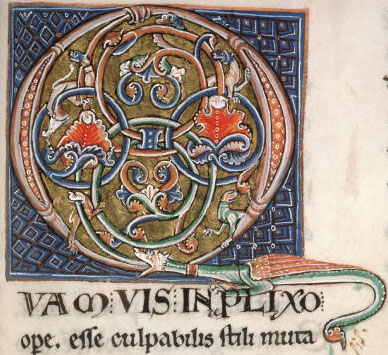 QVAM:VIS:INPLIXO
ope. esse culpabilis stili muta